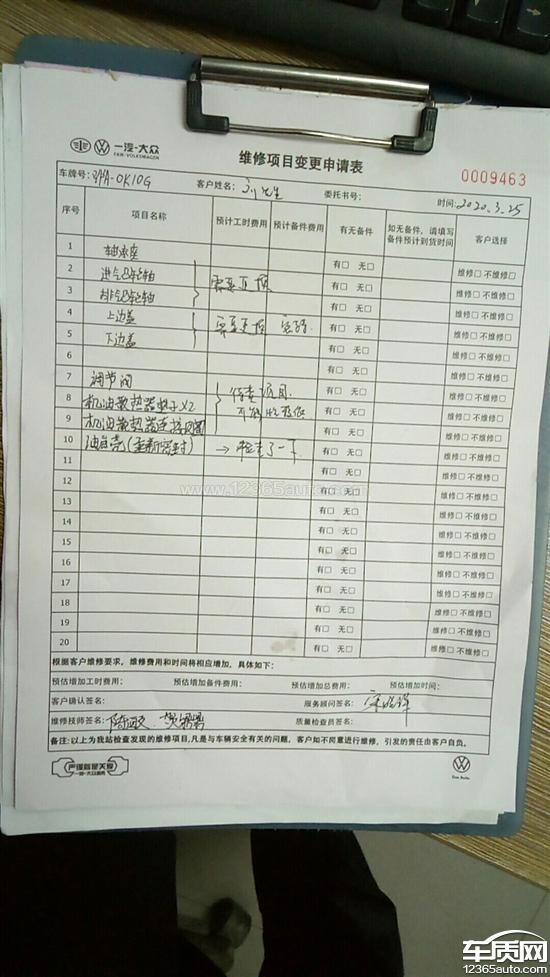 一汽-大众
FAW-VOLKSWAGEN
维修项目变更申请表
0009463
车牌号: 客户姓名: 刘先生 委托书号: 时间: 2020.3.25
序号 项目名称 预计工时费用 预计备件费用 有无备件 如无备件，请填写备件预计到货时间 客户选择
1 轴承座 有□ 无□ 维修□ 不维修□
2 进气凸轮轴 有□ 无□ 维修□ 不维修□
3 排气凸轮轴 有□ 无□ 维修□ 不维修□
4 上边盖 有□ 无□ 维修□ 不维修□
5 下边盖 有□ 无□ 维修□ 不维修□
6 有□ 无□ 维修□ 不维修□
7 调节阀 有□ 无□ 维修□ 不维修□
8 机油散热器垫子X2 有□ 无□ 维修□ 不维修□
9 机油散热器连接 有□ 无□ 维修□ 不维修□
10 油底壳(重新密封) → 检查了一下 有□ 无□ 维修□ 不维修□
11 有□ 无□ 维修□ 不维修□
12 有□ 无□ 维修□ 不维修□
13 有□ 无□ 维修□ 不维修□
14 有□ 无□ 维修□ 不维修□
15 有□ 无□ 维修□ 不维修□
16 有□ 无□ 维修□ 不维修□
17 有□ 无□ 维修□ 不维修□
18 有□ 无□ 维修□ 不维修□
19 有□ 无□ 维修□ 不维修□
20 有□ 无□ 维修□ 不维修□
www.12365auto.com
根据客户维修要求，维修费用和时间将相应增加，具体如下：
预估增加工时费用: 预估增加备件费用: 预估增加总费用: 预估增加时间:
客户确认签名: 服务顾问签名:
维修技师签名: 质量检查员签名:
备注:以上为我站检查发现的维修项目,凡是与车辆安全有关的问题，客户如不同意进行维修，引发的责任由客户自负。
严谨就是关爱
一汽-大众服务
Das Auto
车质网
12365auto.com